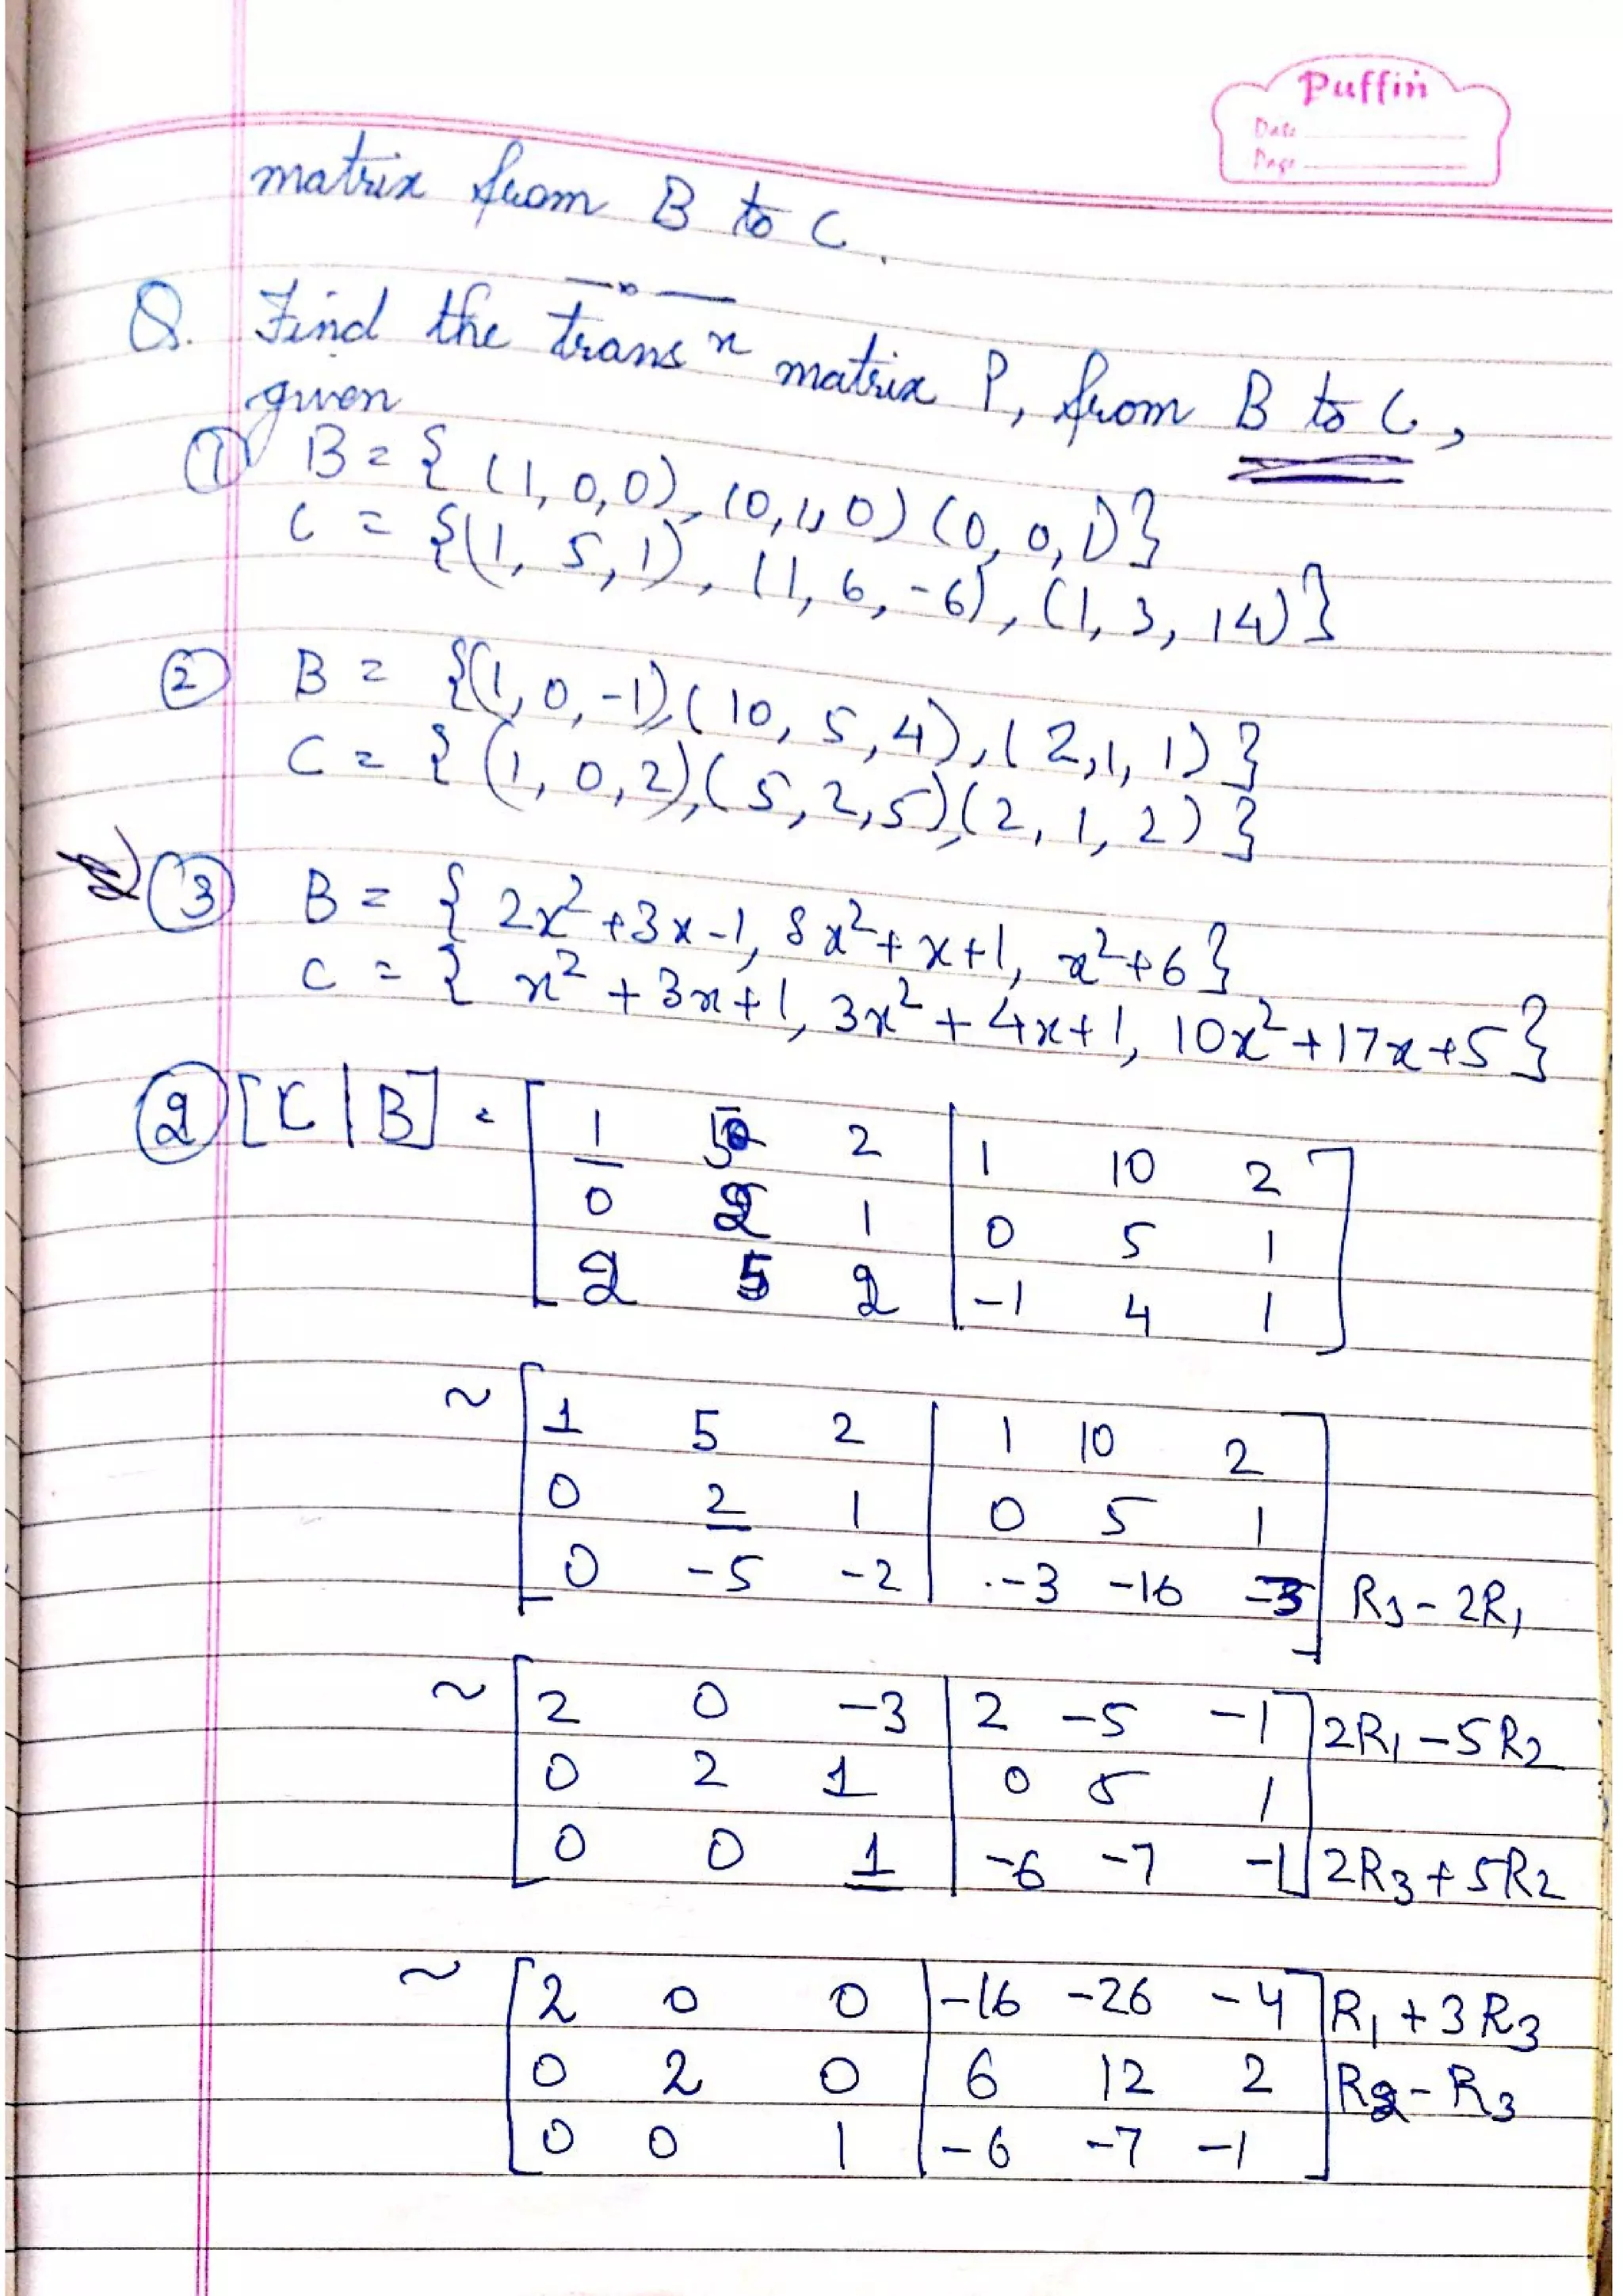 Puffin
Date
Page
matrix from B to C.
Q. Find the transⁿ matrix P, from B to C,
given
① B = { (1, 0, 0), (0, 1, 0) (0, 0, 1) }
C = { (1, 5, 1), (1, 6, -6), (1, 3, 14) }
② B = { (1, 0, -1), (10, 5, 4), (2, 1, 1) }
C = { (1, 0, 2), (5, 2, 5), (2, 1, 2) }
③ B = { 2x² + 3x - 1, 8x² + x + 1, x² + 6 }
C = { x² + 3x + 1, 3x² + 4x + 1, 10x² + 17x + 5 }
② [C | B] = [ 1 5 2 | 1 10 2 ]
0 2 1 | 0 5 1
2 5 2 | -1 4 1
~ [ 1 5 2 | 1 10 2 ]
0 2 1 | 0 5 1
0 -5 -2 | -3 -16 -3 R₃ - 2R₁
~ [ 2 0 -3 | 2 -5 -1 ] 2R₁ - 5R₂
0 2 1 | 0 5 1
0 0 1 | -6 -7 -1 2R₃ + 5R₂
~ [ 2 0 0 | -16 -26 -4 ] R₁ + 3R₃
0 2 0 | 6 12 2 R₂ - R₃
0 0 1 | -6 -7 -1